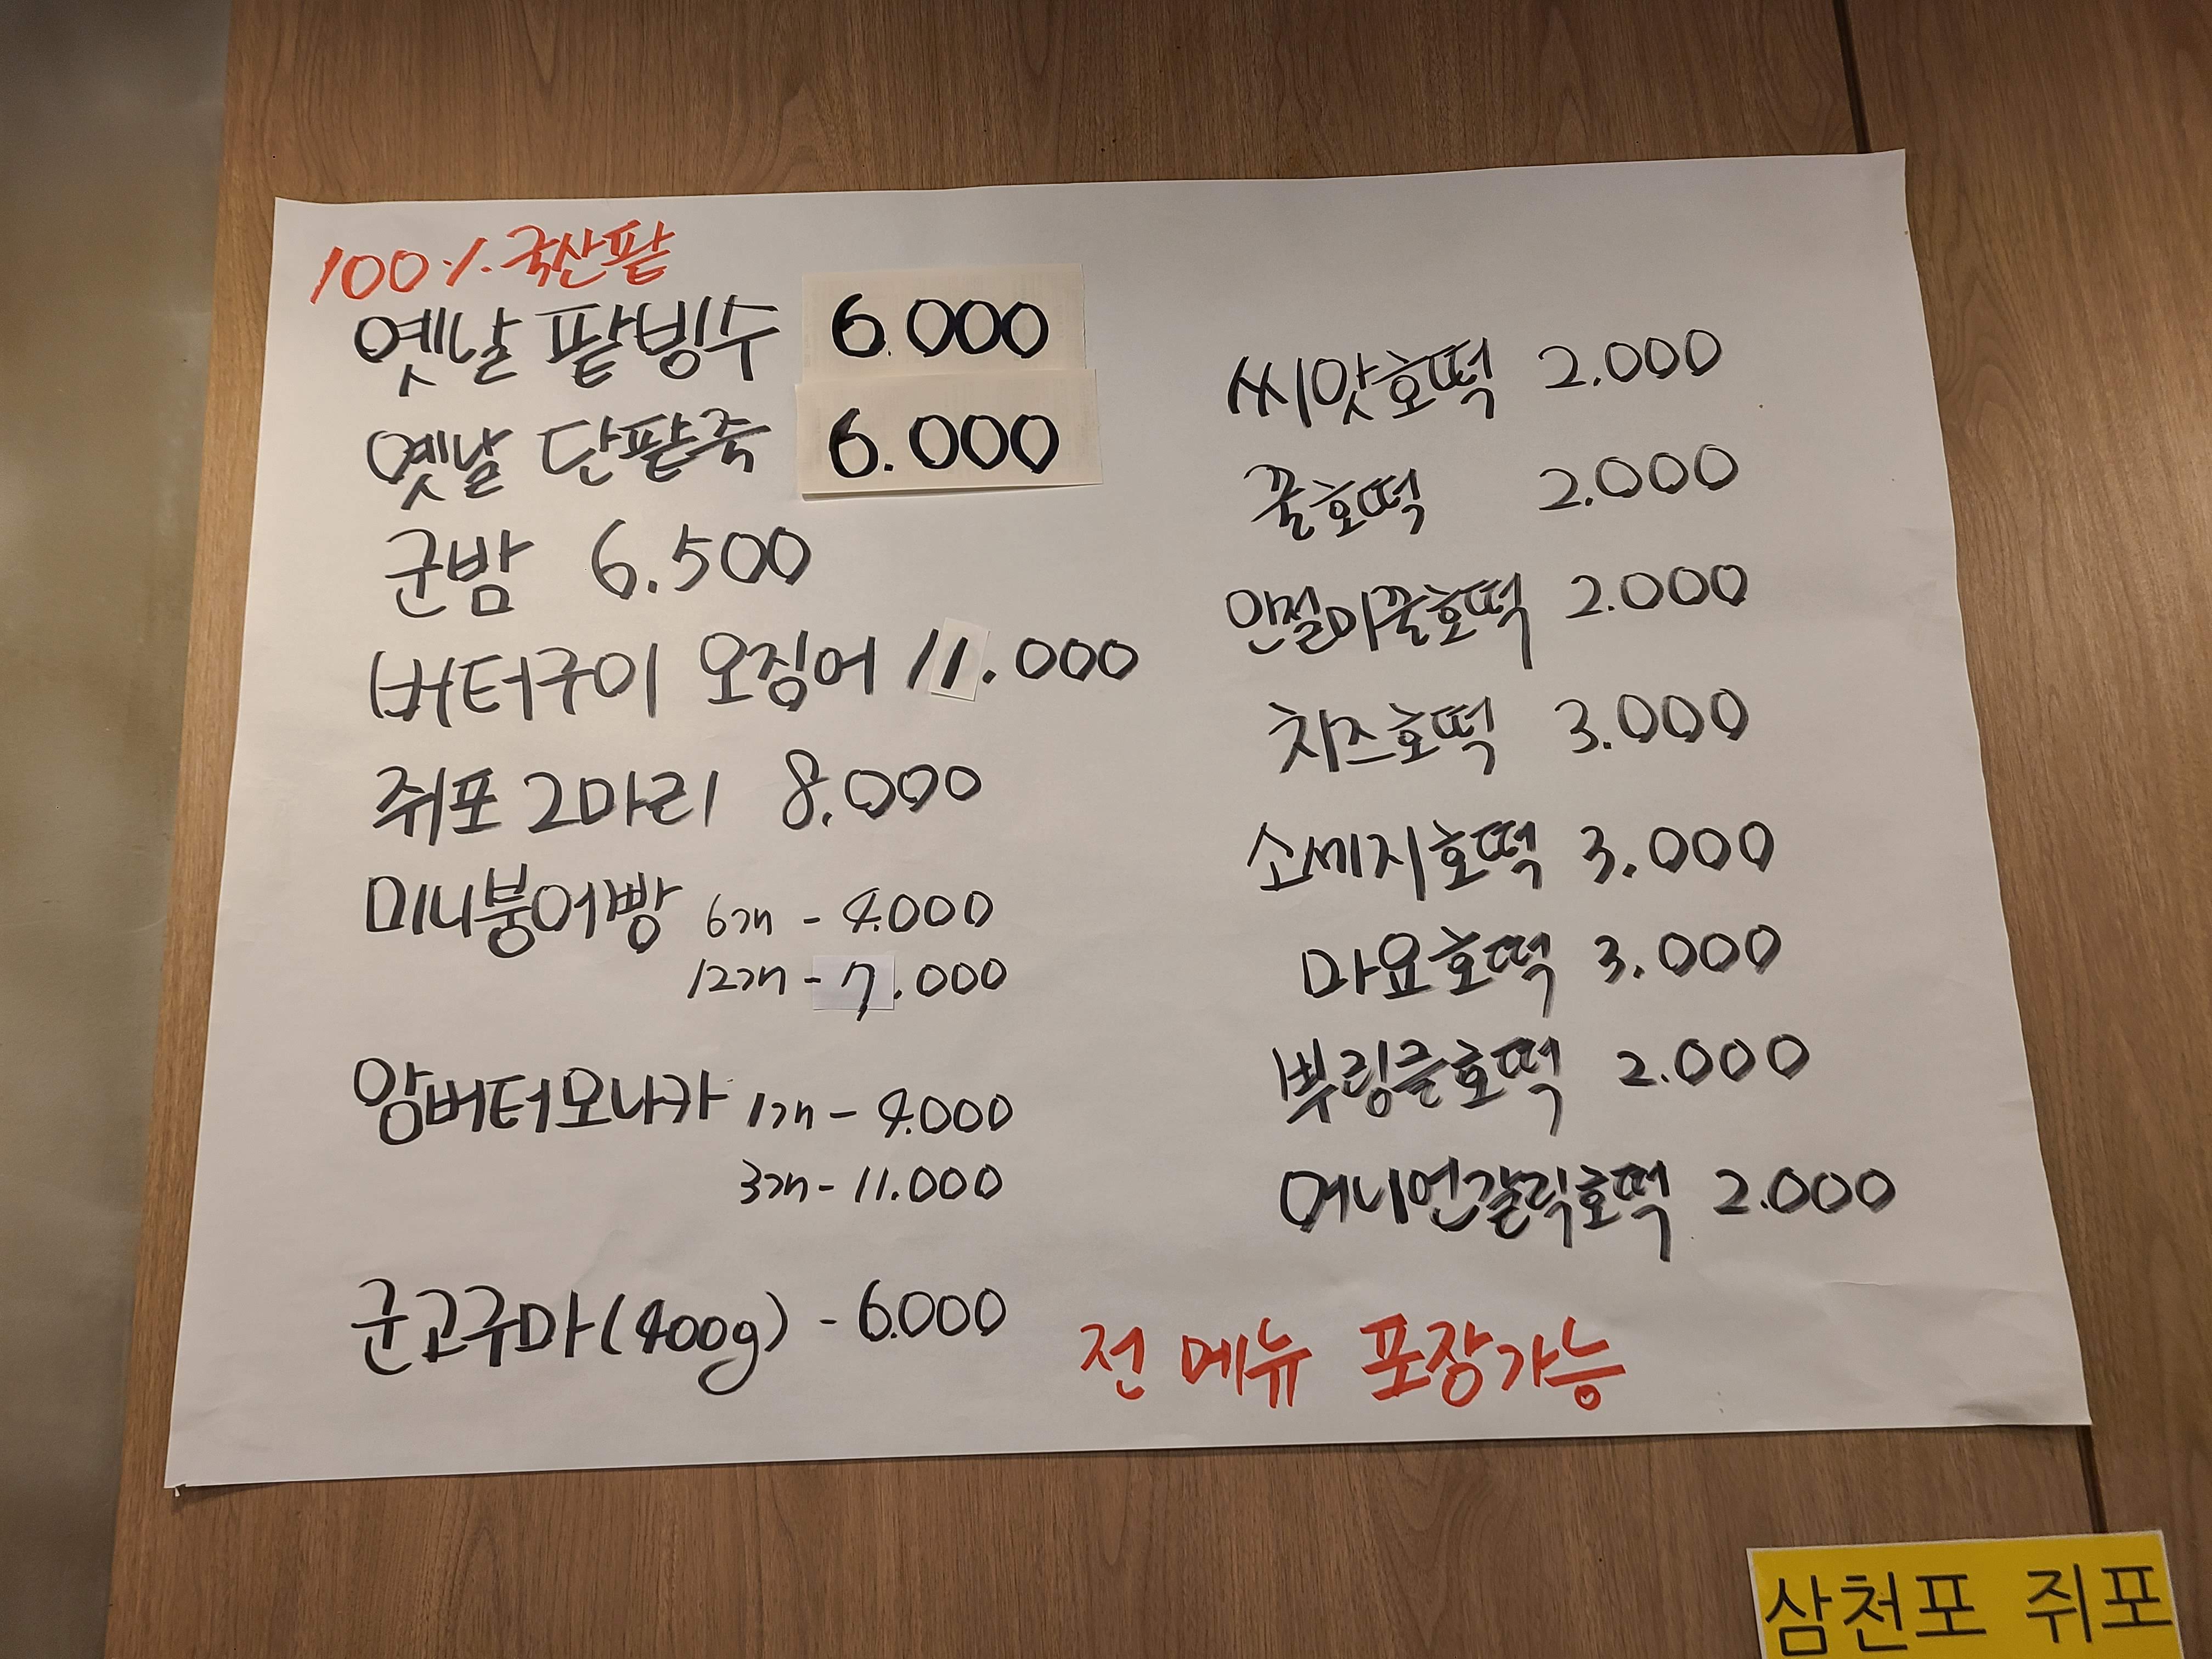 100% 국산팥
옛날 팥빙수 6.000
옛날 단팥죽 6.000
군밤 6.500
버터구이 오징어 11.000
쥐포 2마리 8.000
미니붕어빵 6개 - 4.000
12개 - 7.000
앙버터모나카 1개 - 4.000
3개 - 11.000
군고구마(400g) - 6.000
씨앗호떡 2.000
꿀호떡 2.000
인절미꿀호떡 2.000
치즈호떡 3.000
소세지호떡 3.000
마요호떡 3.000
뿌링클호떡 2.000
어니언갈릭호떡 2.000
전 메뉴 포장가능
삼천포 쥐포